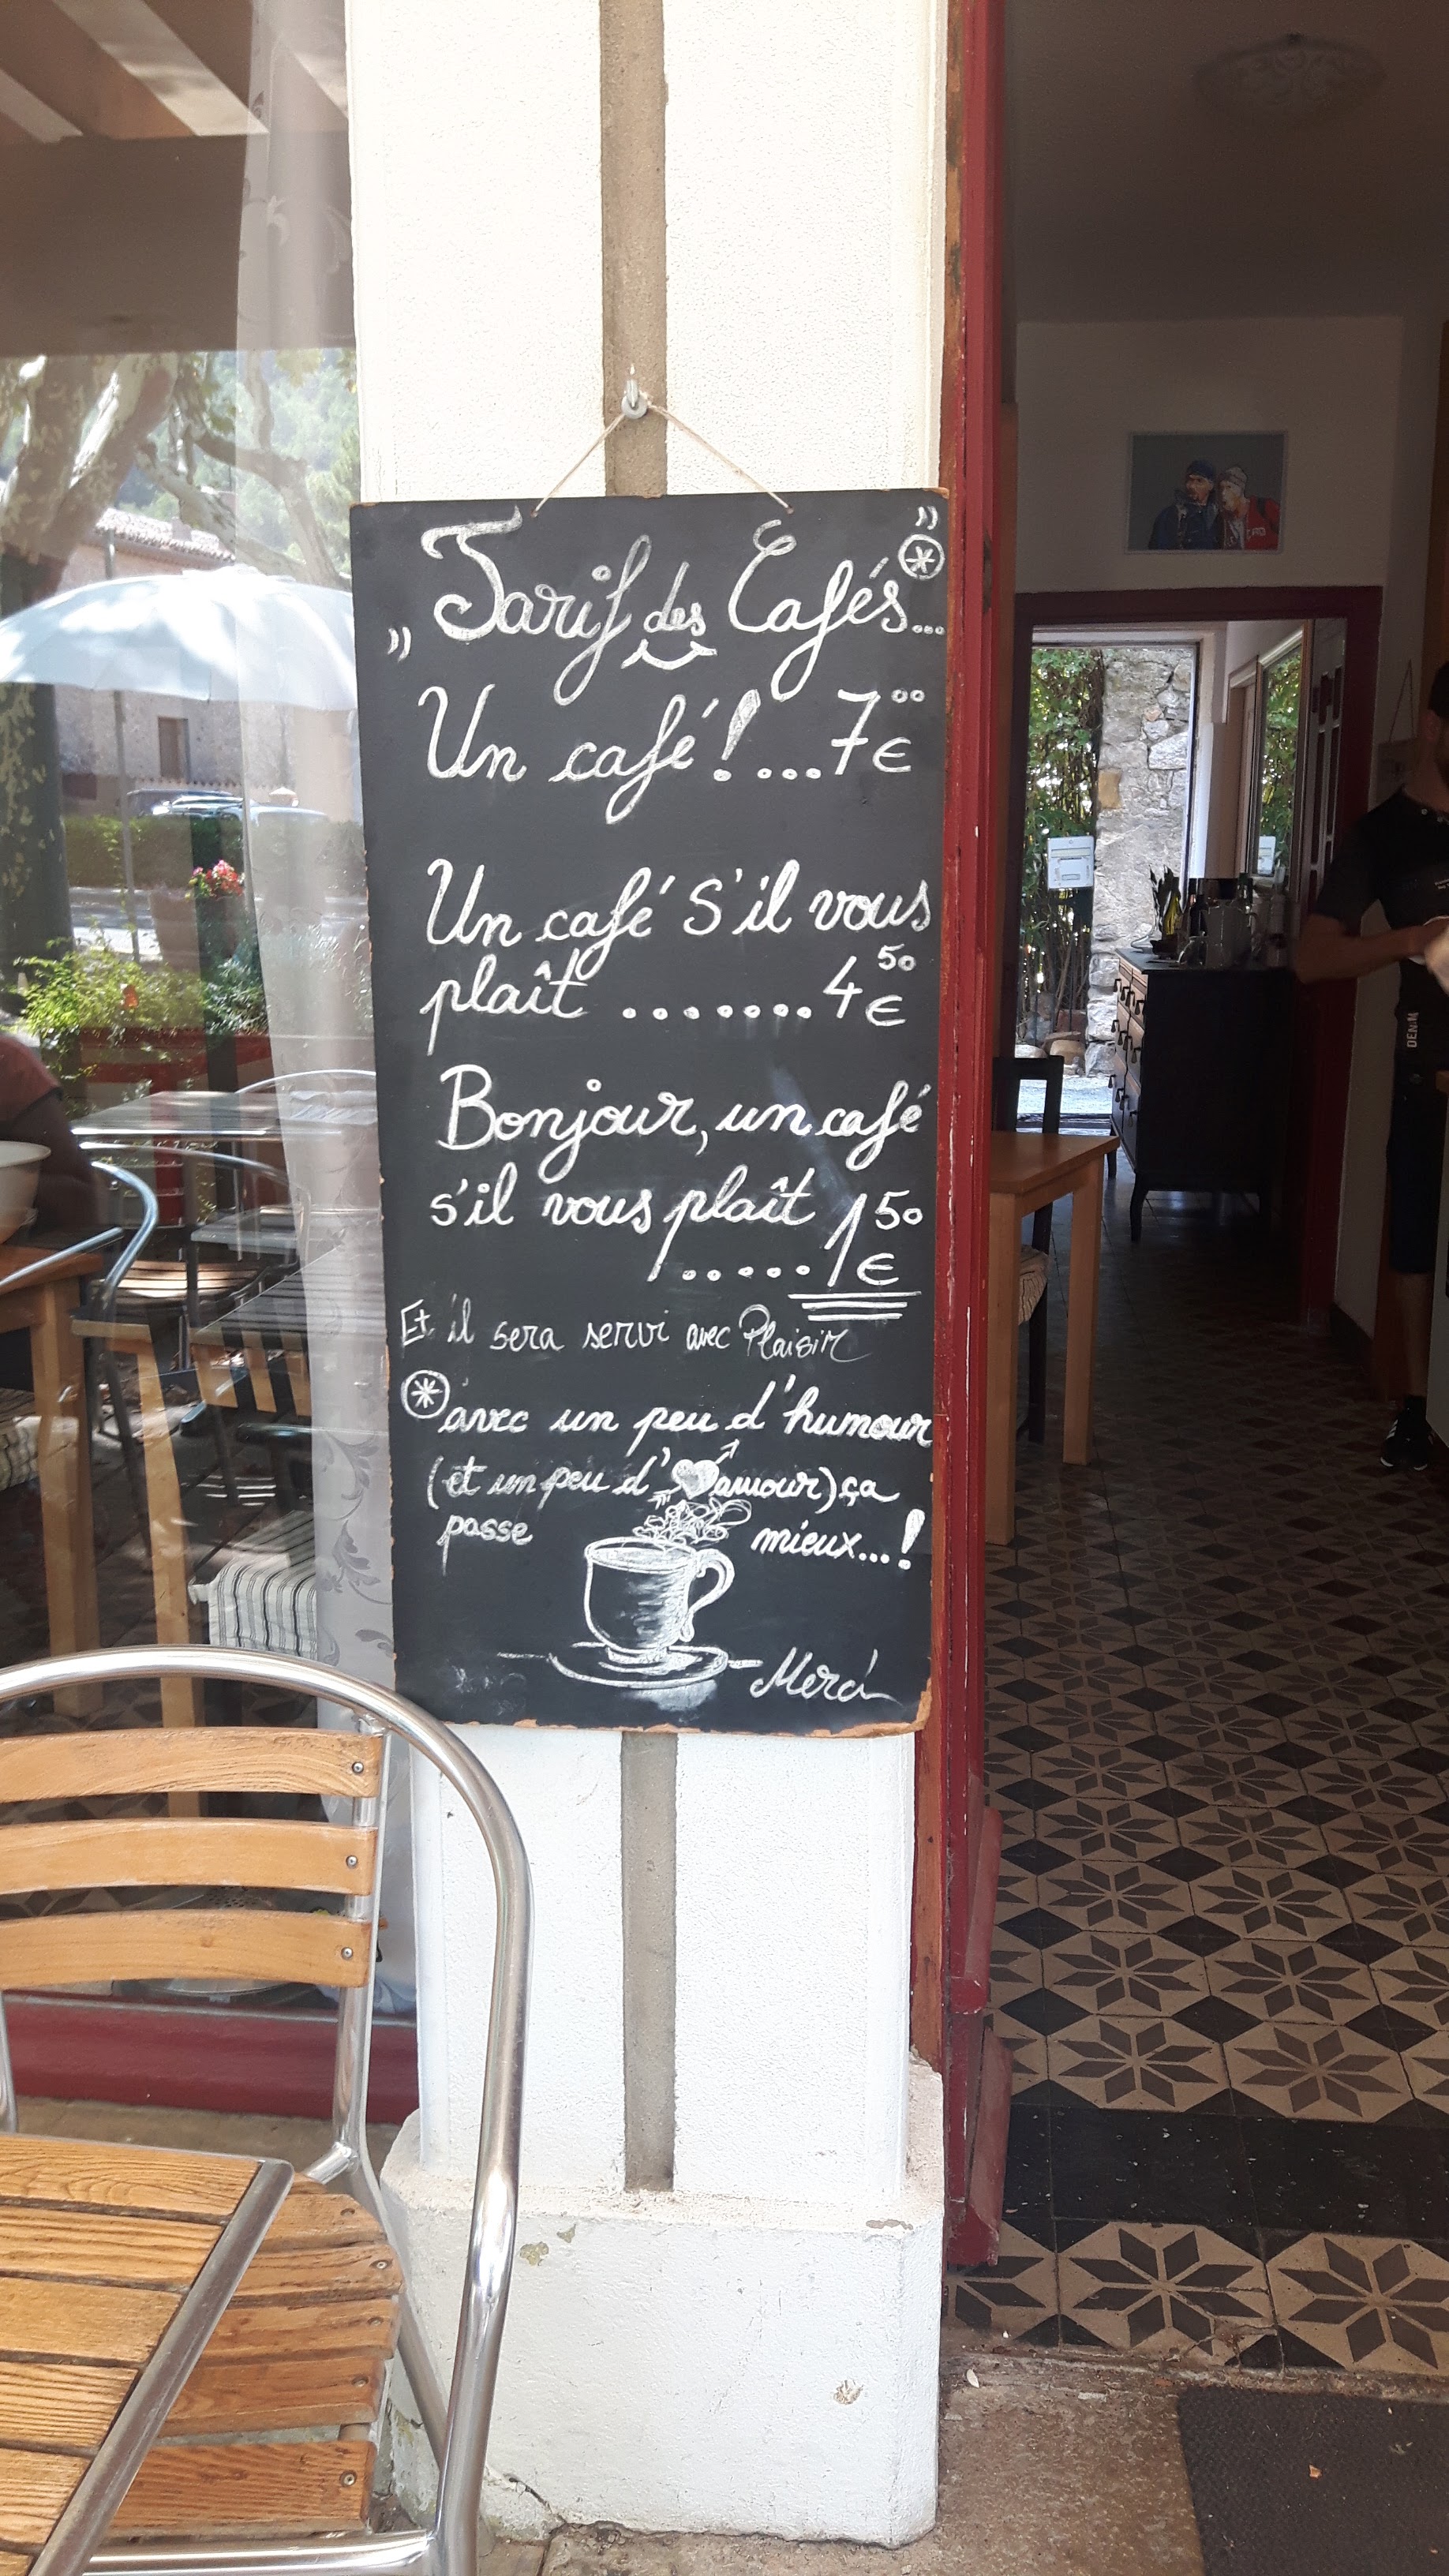 „ Tarif des Cafés... ”
Un café ! ....7€00
Un café S'il vous
plaît ........ 4€50
Bonjour, un café
s'il vous plaît 1€50
.....
Et il sera servi avec Plaisir
* avec un peu d'humour
(et un peu d'amour) ça
passe mieux...!
Merci
DENIM